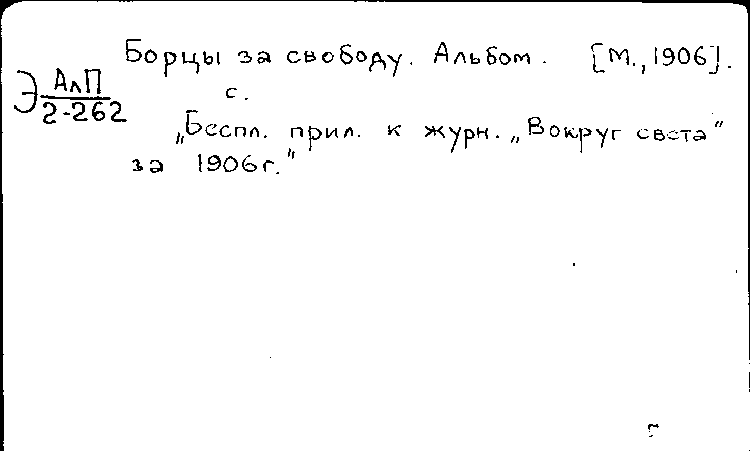 Борцы за свободу. Альбом. [М., 1906].
Э АлП
2-262
с.
„Беспл. прил. к журн. „Вокруг света"
за 1906г."